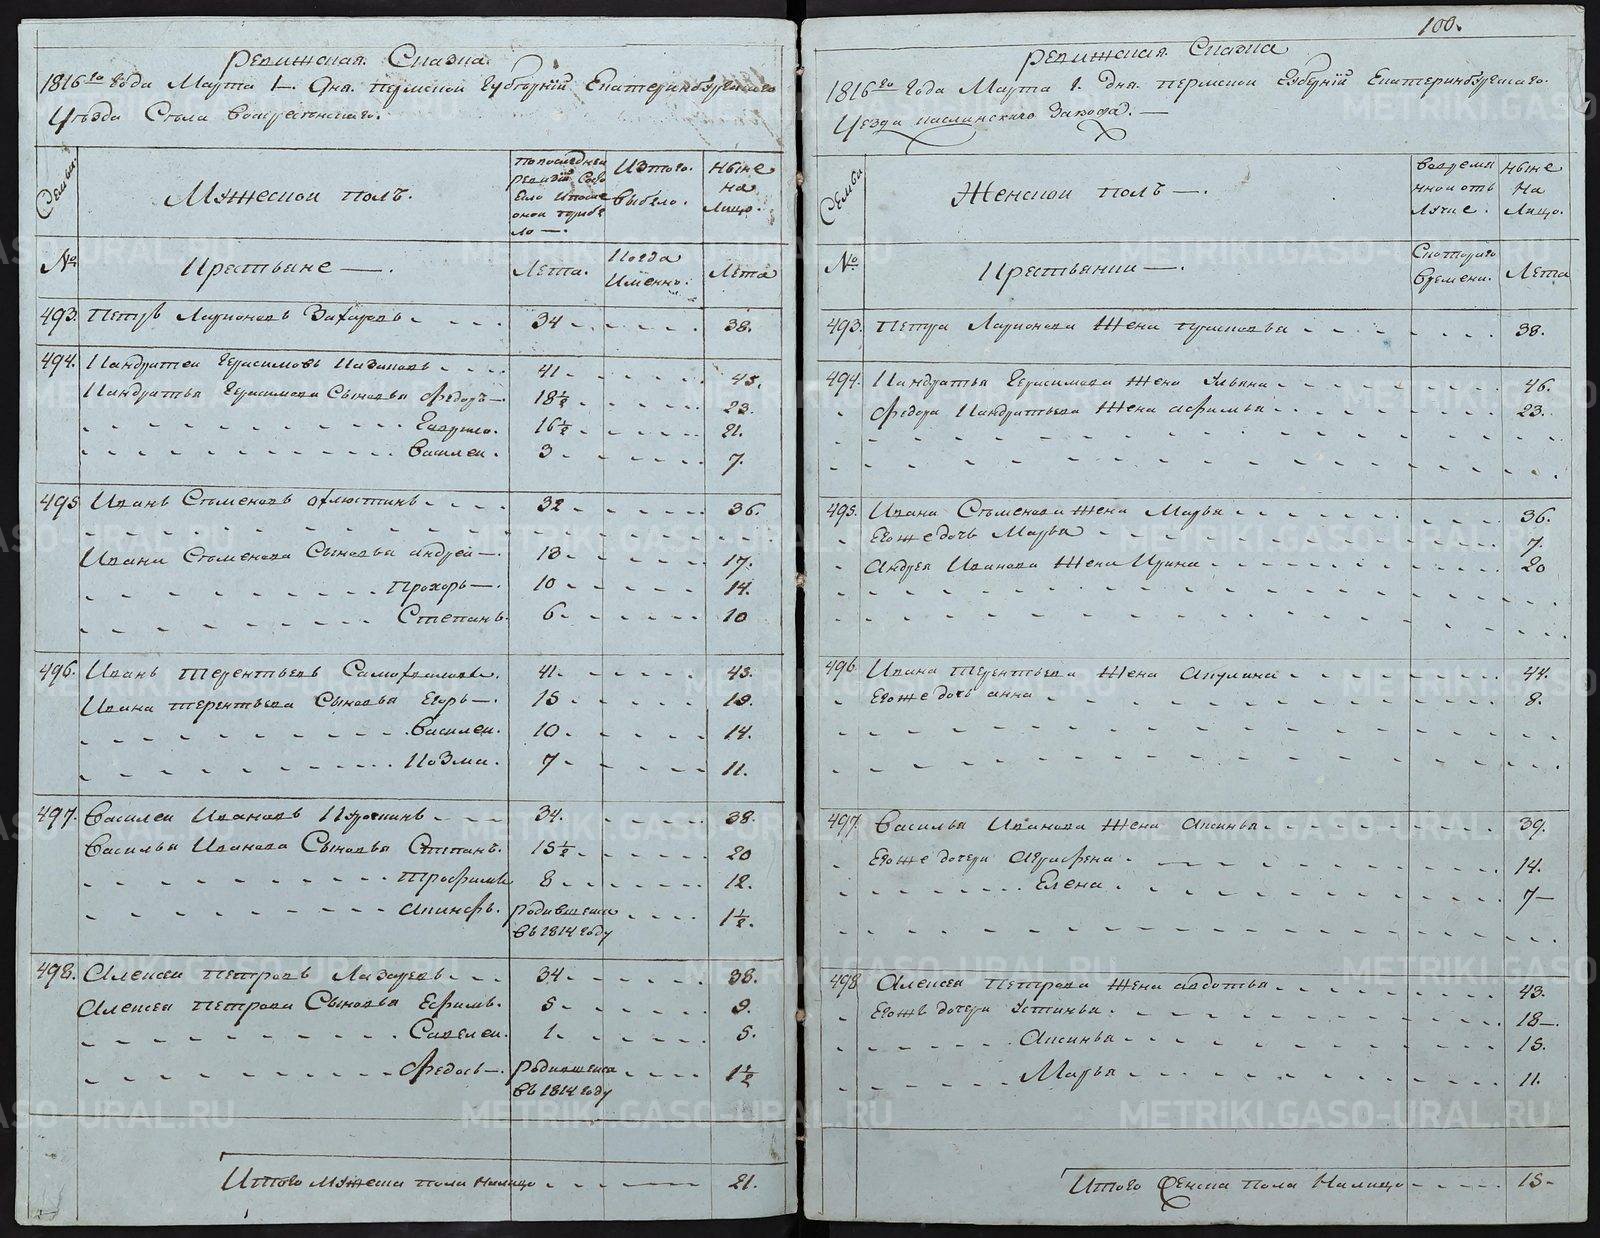 100.
Ревижская Сказка
1816го Года Марта 1. Дня. пермской Губернiй Екатеринбургскаго
Уѣзда Села Воскресенскаго.
Семьи.
Мужеской полъ.
По последней
ревизiй Состо
яло и после
оной прибы
ло —.
Изтого.
Выбыло.
Ныне
На
Лицо.
№
Крестьяне —.
Лета.
Когда
Имянно.
Лета
493. Петръ Ларионовъ Захаровъ. 34 38.
494. Кандратеи Герасимовъ Казаковъ 41 45.
Кандратья Герасимова Сыновья Федоръ — 18½ 23.
Гаврило. 16½ 21.
Василеи. 3 7.
495 Иванъ Семеновъ 32 36.
Ивана Семенова Сыновья андреи —. 13 17.
Прохоръ —. 10 14.
Степанъ. 6 10
496. Иванъ Терентьевъ 41. 45.
Ивана Терентьева Сыновья Егоръ —. 15 19.
Василеи. 10 14.
Козма. 7 11.
497. Василеи Ивановъ 34. 38.
Василья Иванова Сыновья Степанъ. 15½ 20
Трофимъ 8 12.
Акинфъ. родившеися 1½.
въ 1814 году
498. Алексеи Петровъ Лазаревъ 34 38.
Алексея Петрова Сыновья Ефимъ. 5 9.
Савелеи. 1. 5.
Федосъ —. родившеися 1½
въ 1814 году
Итого Мужеска пола налицо 21.
ревижская Сказка
1816го Года Марта 1. Дня. пермской Губернiй Екатеринбургскаго.
Уезда каслинскаго Завода. —
Семьи
Женской полъ —.
Во время
нной отъ
лучке.
Ныне
На
Лицо.
№
Крестьянки —.
Скотораго
времени.
Лета
493. Петра Ларионова Жена 38.
494. Кандратья Герасимова Жена Ульяна 46.
Федора Кандратьева Жена афимья 23.
495. Ивана Семенова Жена Марья 36.
Егоже дочь Марья 7.
Андрея Иванова Жена Ирина 20
496. Ивана Терентьева Жена Акулина 44.
Егоже дочь анна 8.
497. Василья Иванова Жена Аксинья 39.
Егоже дочери Аграфена. 14.
Елена. 7—
498 Алексея Петрова Жена авдотья 43.
Егожъ дочери Устинья. 18—.
Аксинья 15.
Марья 11.
Итого Женска пола Налицо 15-